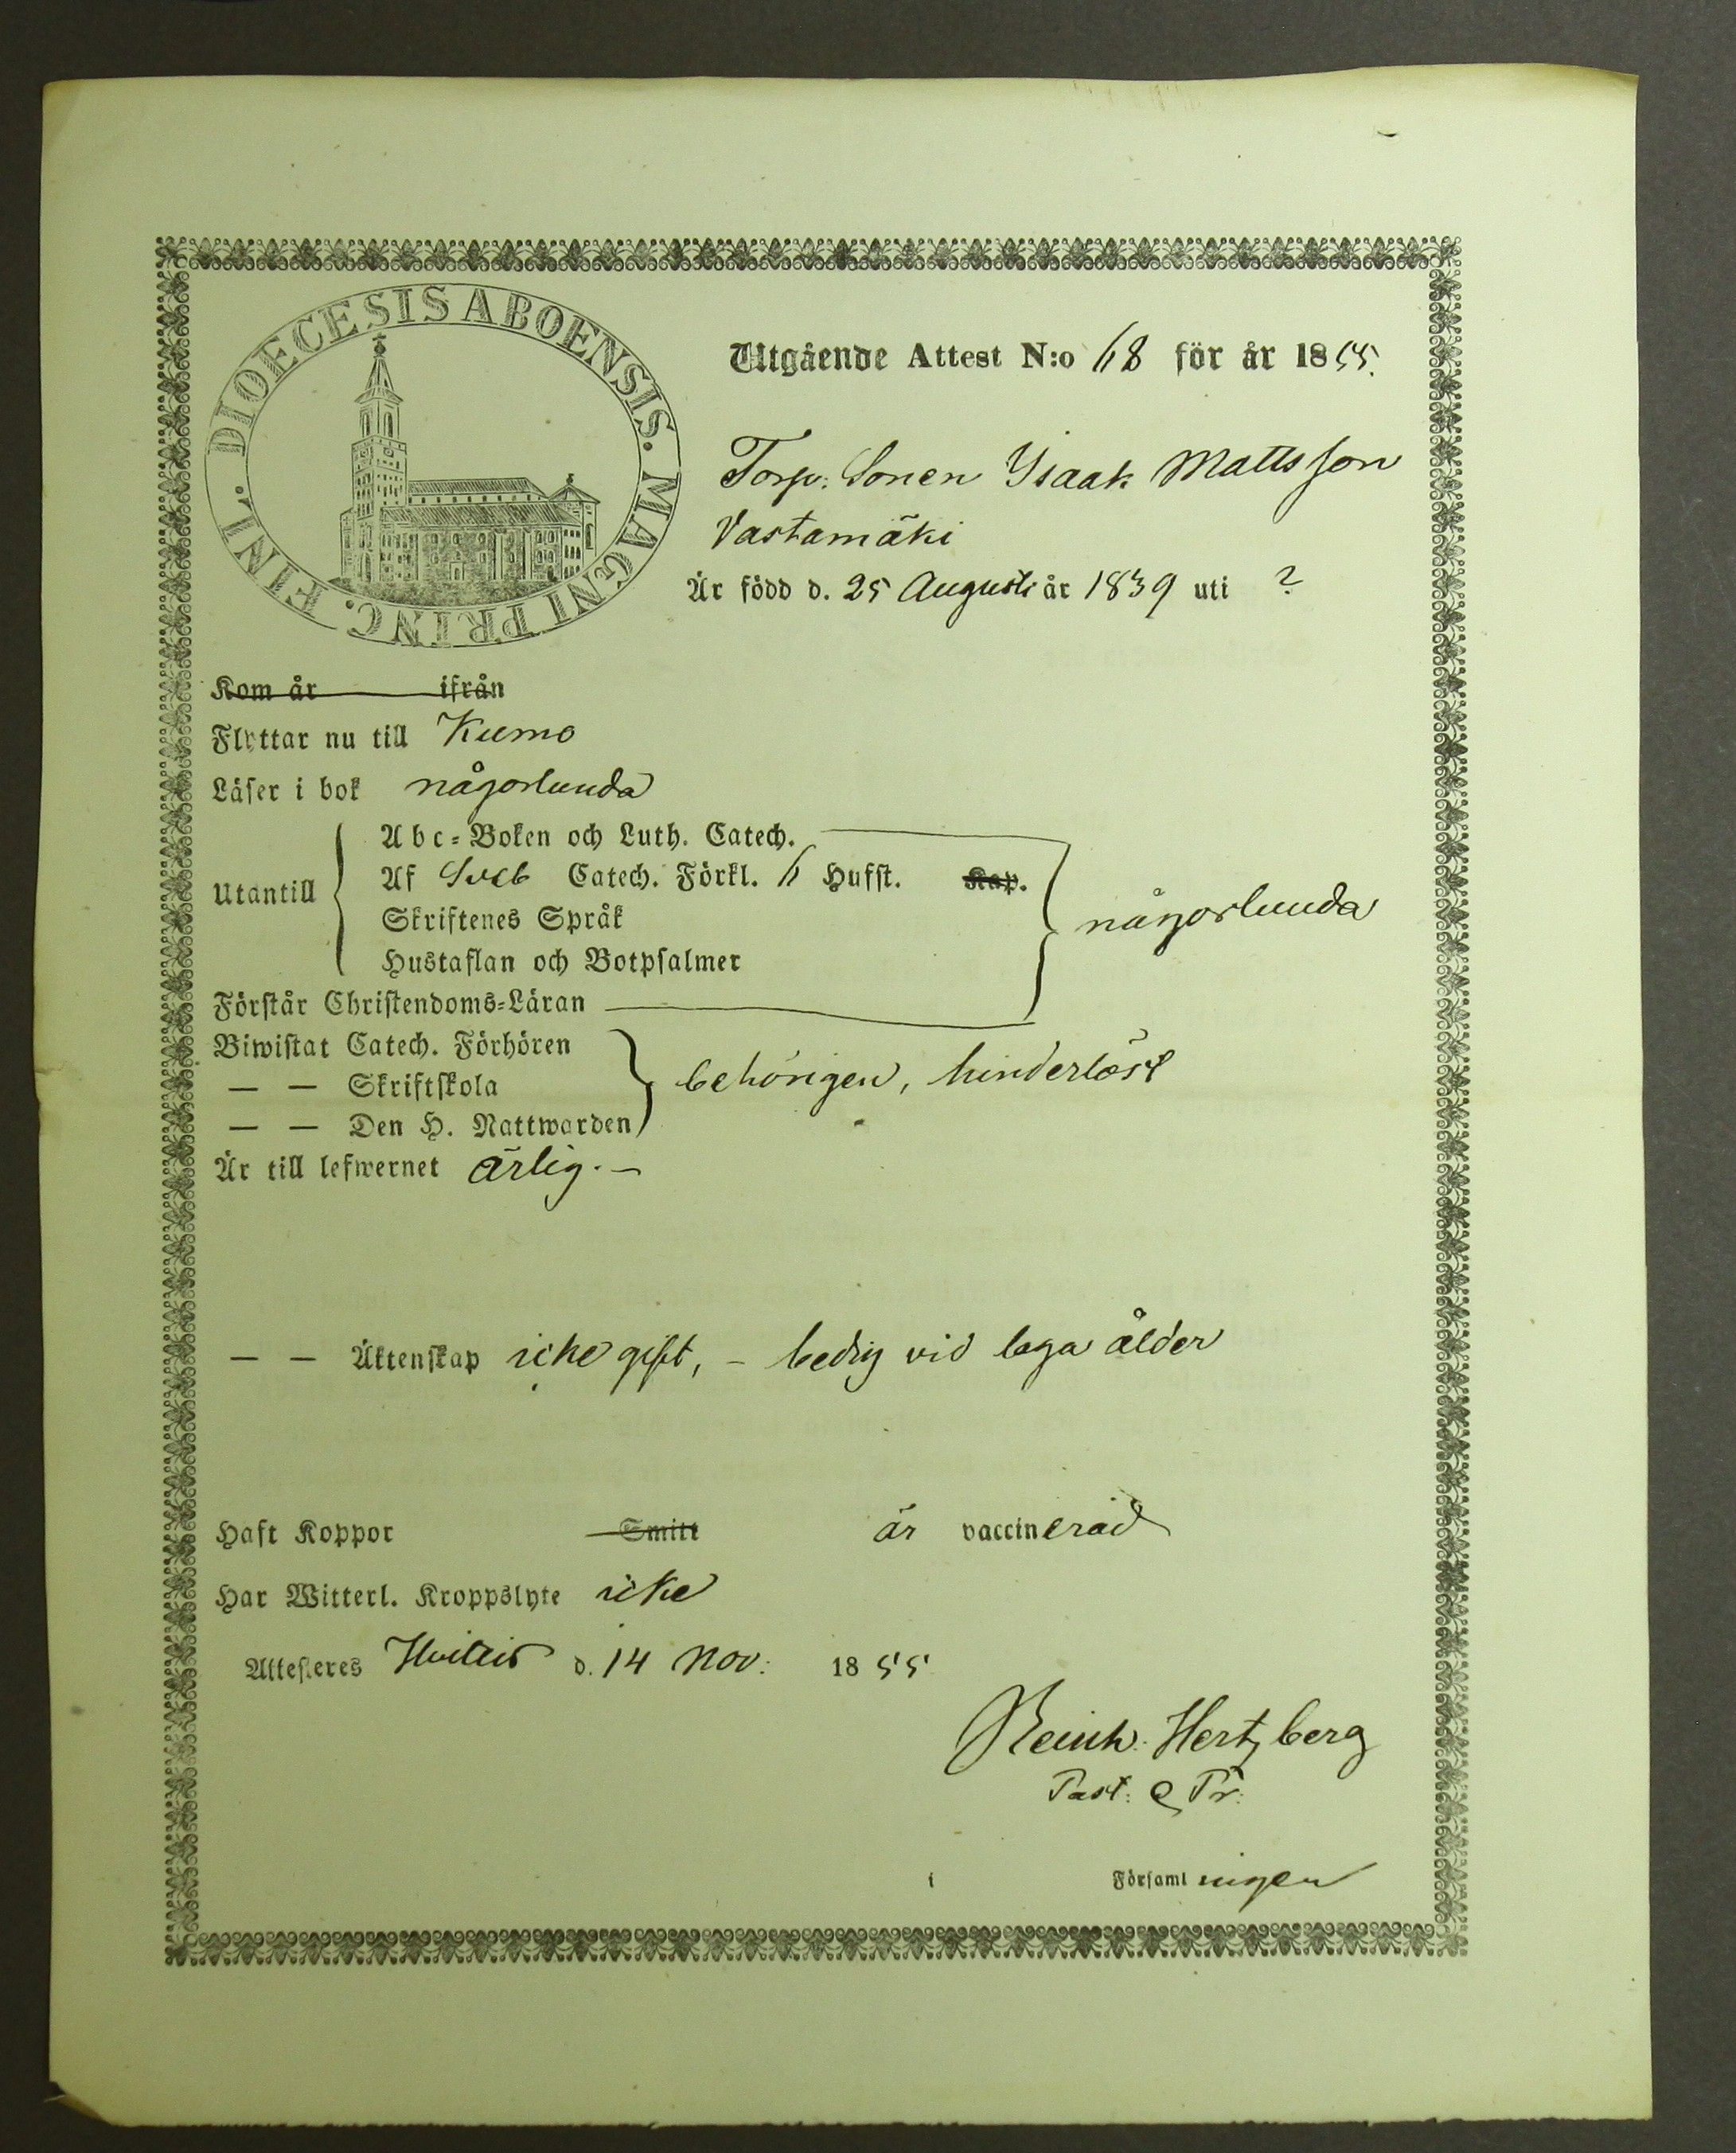 DIOECESIS ABOENSIS. MAGNI PRINC. FINL.
Utgående Attest N:o 68 för år 1855.
Torp: Sonen Isaak Mattsson
Vastamäki
Är född d. 25 Augusti år 1839 uti ?
Kom år ifrån
Flyttar nu till Kumo
Läser i bok någorlunda
Abc-Boken och Luth. Catech.
Utantill
Af Sveb Catech. Förkl. 6 Hufst. Kap.
Skriftenes Språk
någorlunda
Hustaflan och Botpsalmer
Förstår Christendoms-Läran
Biwistat Catech. Förhören
— — Skriftskola
behörigen, hinderlöst
— — Den H. Nattwarden
Är till lefwernet ärlig. —
— — Äktenskap icke gift, – ledig vid laga ålder
Haft Koppor Smitt är vaccinerad
Har Witterl. Kroppslyte icke
Attesteres Hvittis d. 14 Nov: 1855
Reinh: Hertzberg
Past: & Pr:
i Församlingen